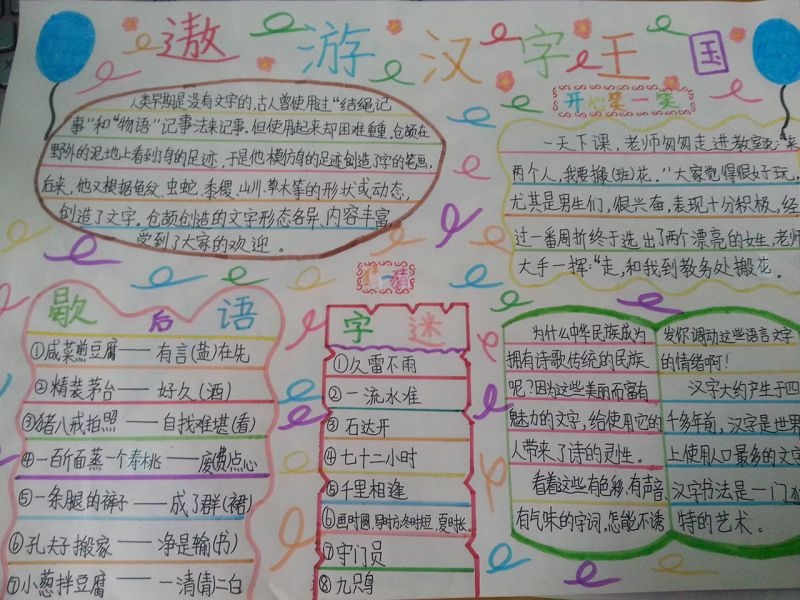 遨游汉字王国
人类早期是没有文字的,古人曾使用过“结绳记
事”和“物语”记事法来记事。但使用起来却困难重重,仓颉在
野外的泥地上看到鸟的足迹,于是他模仿鸟的足迹创造了字的笔画,
后来,他又根据龟纹、虫蛇、黍稷、山川、草木等的形状或动态,
创造了文字。仓颉创造的文字形态各异、内容丰富,
受到了大家的欢迎。
开心笑一笑
一天下课,老师匆匆走进教室说:“来
两个人,我要搬(班)花.”大家觉得很好玩,
尤其是男生们,很兴奋,表现十分积极,经
过一番周折终于选出了两个漂亮的女生,老师
大手一挥:“走,和我到教务处搬花。
歇后语
①咸菜煎豆腐——有言(盐)在先
②精装茅台——好久(酒)
③猪八戒拍照——自找难堪(看)
④一百斤面蒸一个寿桃——废费点心
⑤一条腿的裤子——成了群(裙)
⑥孔夫子搬家——净是输(书)
⑦小葱拌豆腐——一清(青)二白
猜一猜
字迷
①久雷不雨
②一流水准
③石达开
④七十二小时
⑤千里相逢
⑥画时圆,写时方,冬时短,夏时长。
⑦守门员
⑧九只鸟
为什么中华民族成为
拥有诗歌传统的民族
呢?因为这些美丽而富有
魅力的文字,给使用它的
人带来了诗的灵性。
看着这些有色彩、有声音、
有气味的字词,怎能不诱
发你调动这些语言文字
的情绪啊!
汉字大约产生于四
千多年前,汉字是世界
上使用人口最多的文字
汉字书法是一门独
特的艺术。